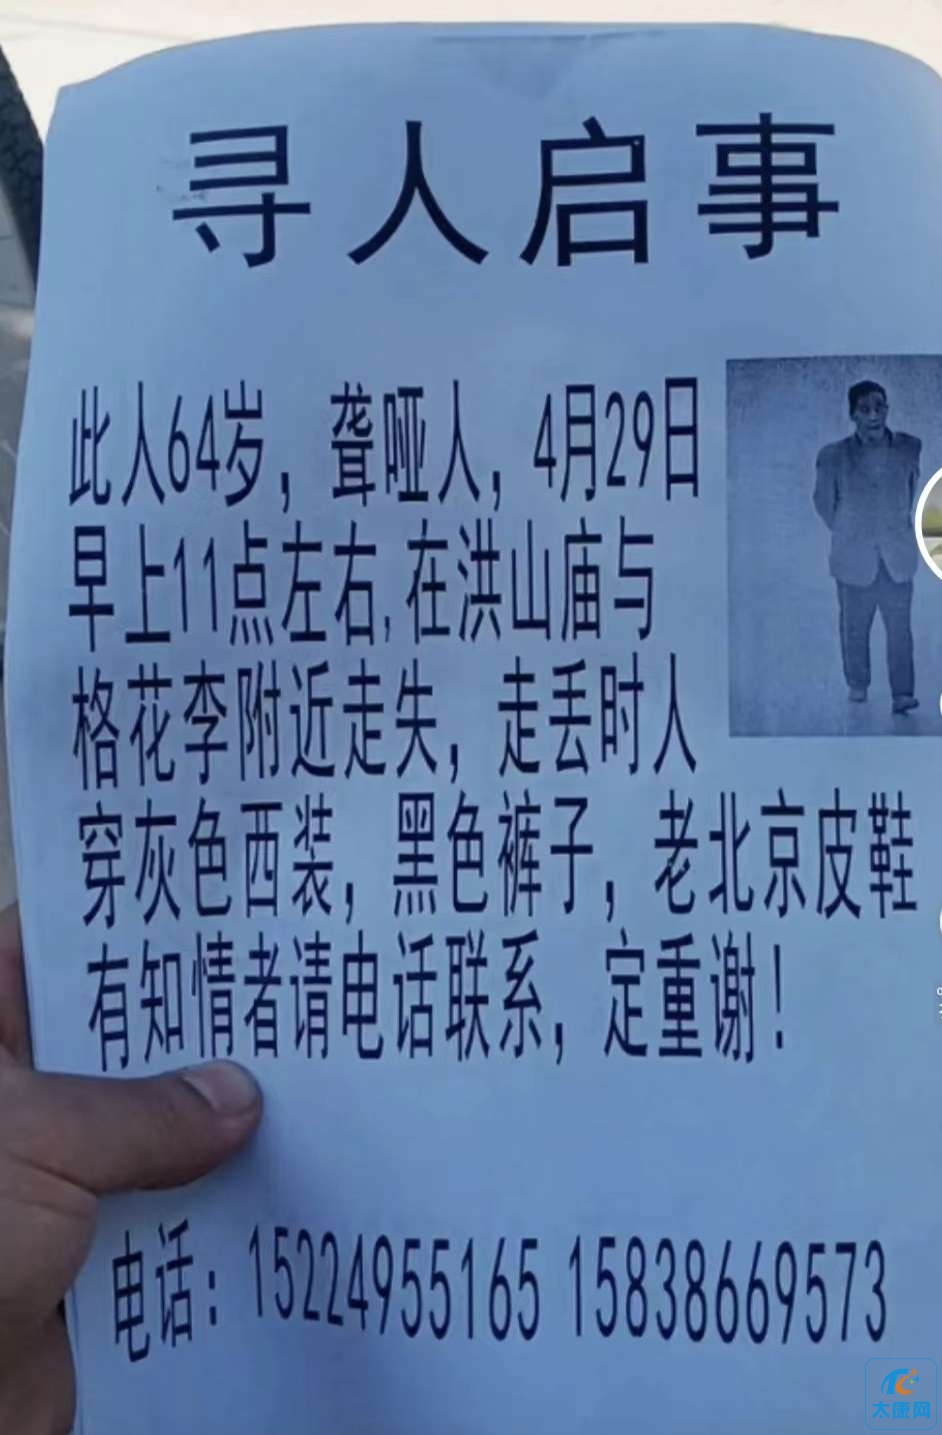 寻人启事
此人64岁，聋哑人，4月29日
早上11点左右,在洪山庙与
格花李附近走失，走丢时人
穿灰色西装，黑色裤子，老北京皮鞋
有知情者请电话联系，定重谢！
电话：15224955165 15838669573
太康网